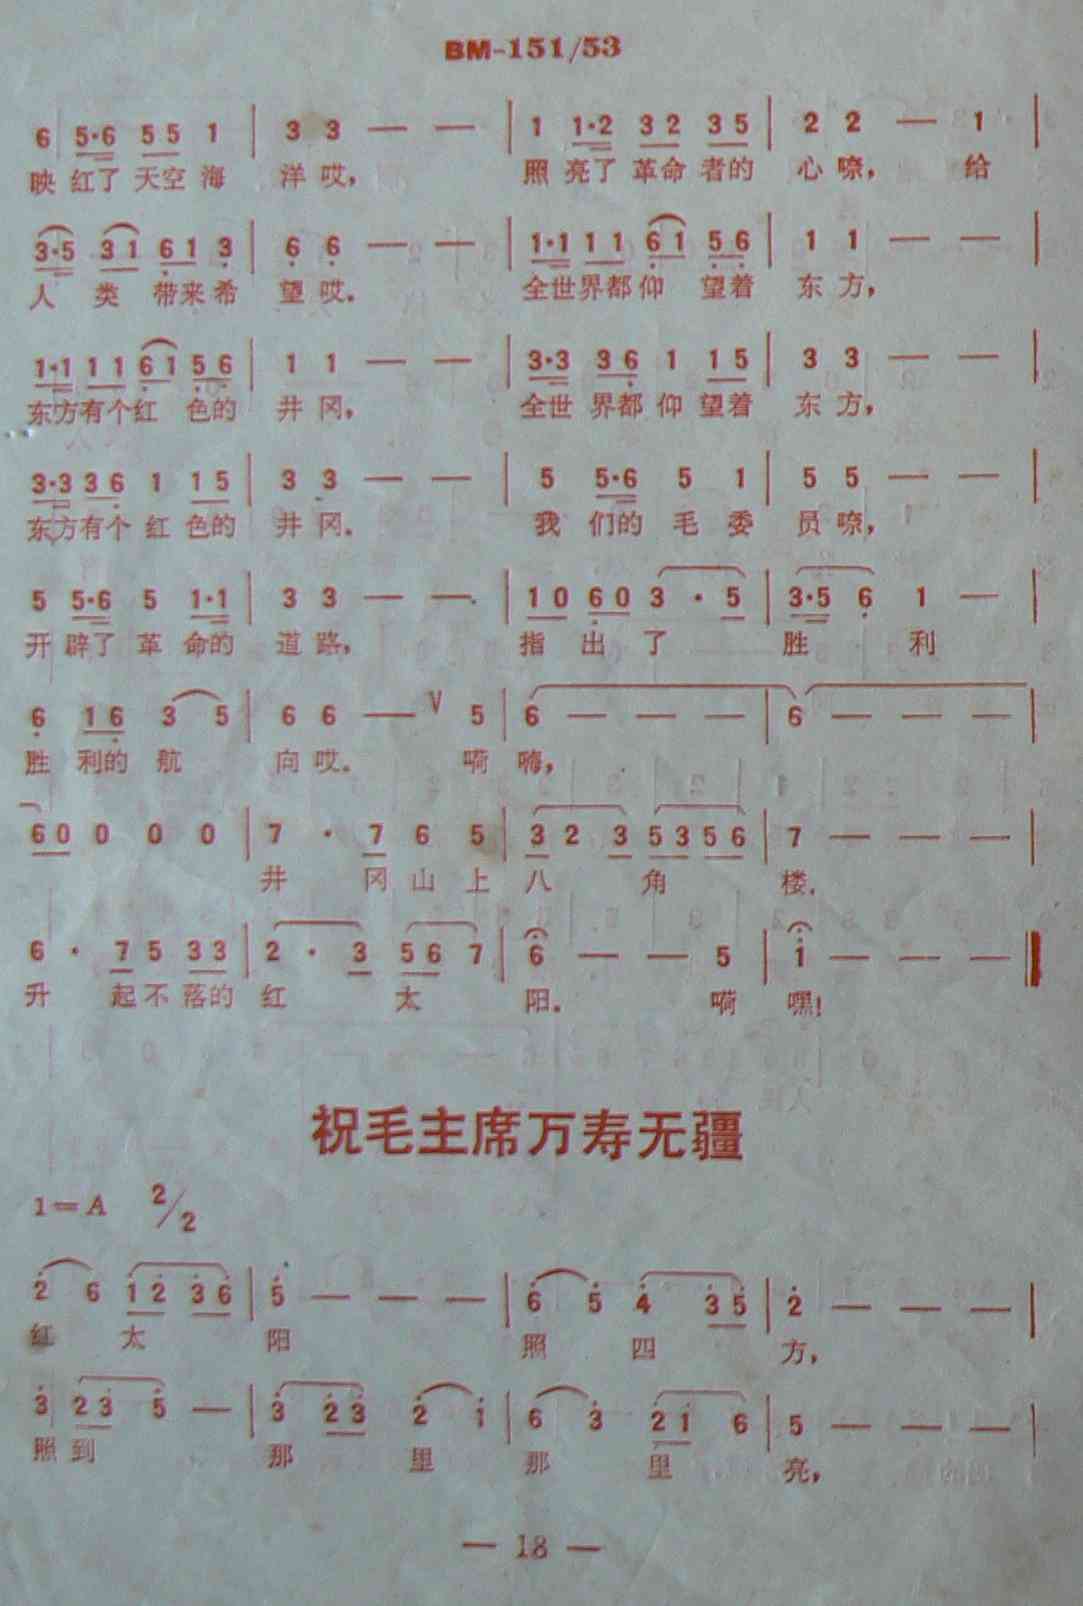 BM-151/53
6 5·6 5 5 1 | 3 3 — — | 1 1·2 3 2 3 5 | 2 2 — 1 |
映 红了 天空 海 洋 哎， 照 亮了 革命 者的 心 嘹， 给
3·5 3 1 6 1 3 | 6 6 — — | 1·1 1 1 6 1 5 6 | 1 1 — — |
人 类 带来 希 望 哎． 全世界都仰 望着 东 方，
1·1 1 1 6 1 5 6 | 1 1 — — | 3·3 3 6 1 1 5 | 3 3 — — |
东方有个红 色的 井 冈， 全世 界都 仰 望着 东 方，
3·3 3 6 1 1 5 | 3 3 — — | 5 5·6 5 1 | 5 5 — — |
东方有个 红 色的 井 冈． 我 们的 毛 委 员 嘹，
5 5·6 5 1·1 | 3 3 — — | 1 0 6 0 3 · 5 | 3·5 6 1 — |
开 辟了 革 命的 道 路， 指 出 了 胜 利
6 1 6 3 5 | 6 6 — V 5 | 6 — — — | 6 — — — |
胜 利的 航 向 哎． 嗬 嗨，
6 0 0 0 0 | 7 · 7 6 5 | 3 2 3 5 3 5 6 | 7 — — — |
井 冈 山 上 八 角 楼．
6 · 7 5 3 3 | 2 · 3 5 6 7 | 6 — — 5 | 1 — — — ‖
升 起 不 落的 红 太 阳． 嗬 嘿！
祝毛主席万寿无疆
1＝A 2/2
2 6 1 2 3 6 | 5 — — — | 6 5 4 3 5 | 2 — — — |
红 太 阳 照 四 方，
3 2 3 5 — | 3 2 3 2 1 | 6 3 2 1 6 | 5 — — — |
照 到 那 里 那 里 亮，
— 18 —